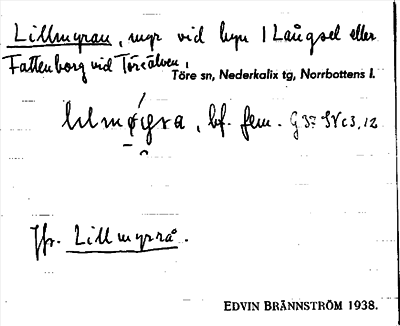 Lillmyran, myr vid byn i Långsel eller
Fattenborg vid Töreälven,
Töre sn, Nederkalix tg, Norrbottens l.
bf. fem.
Jfr. Lillmyrrå.
EDVIN BRÄNNSTRÖM 1938.